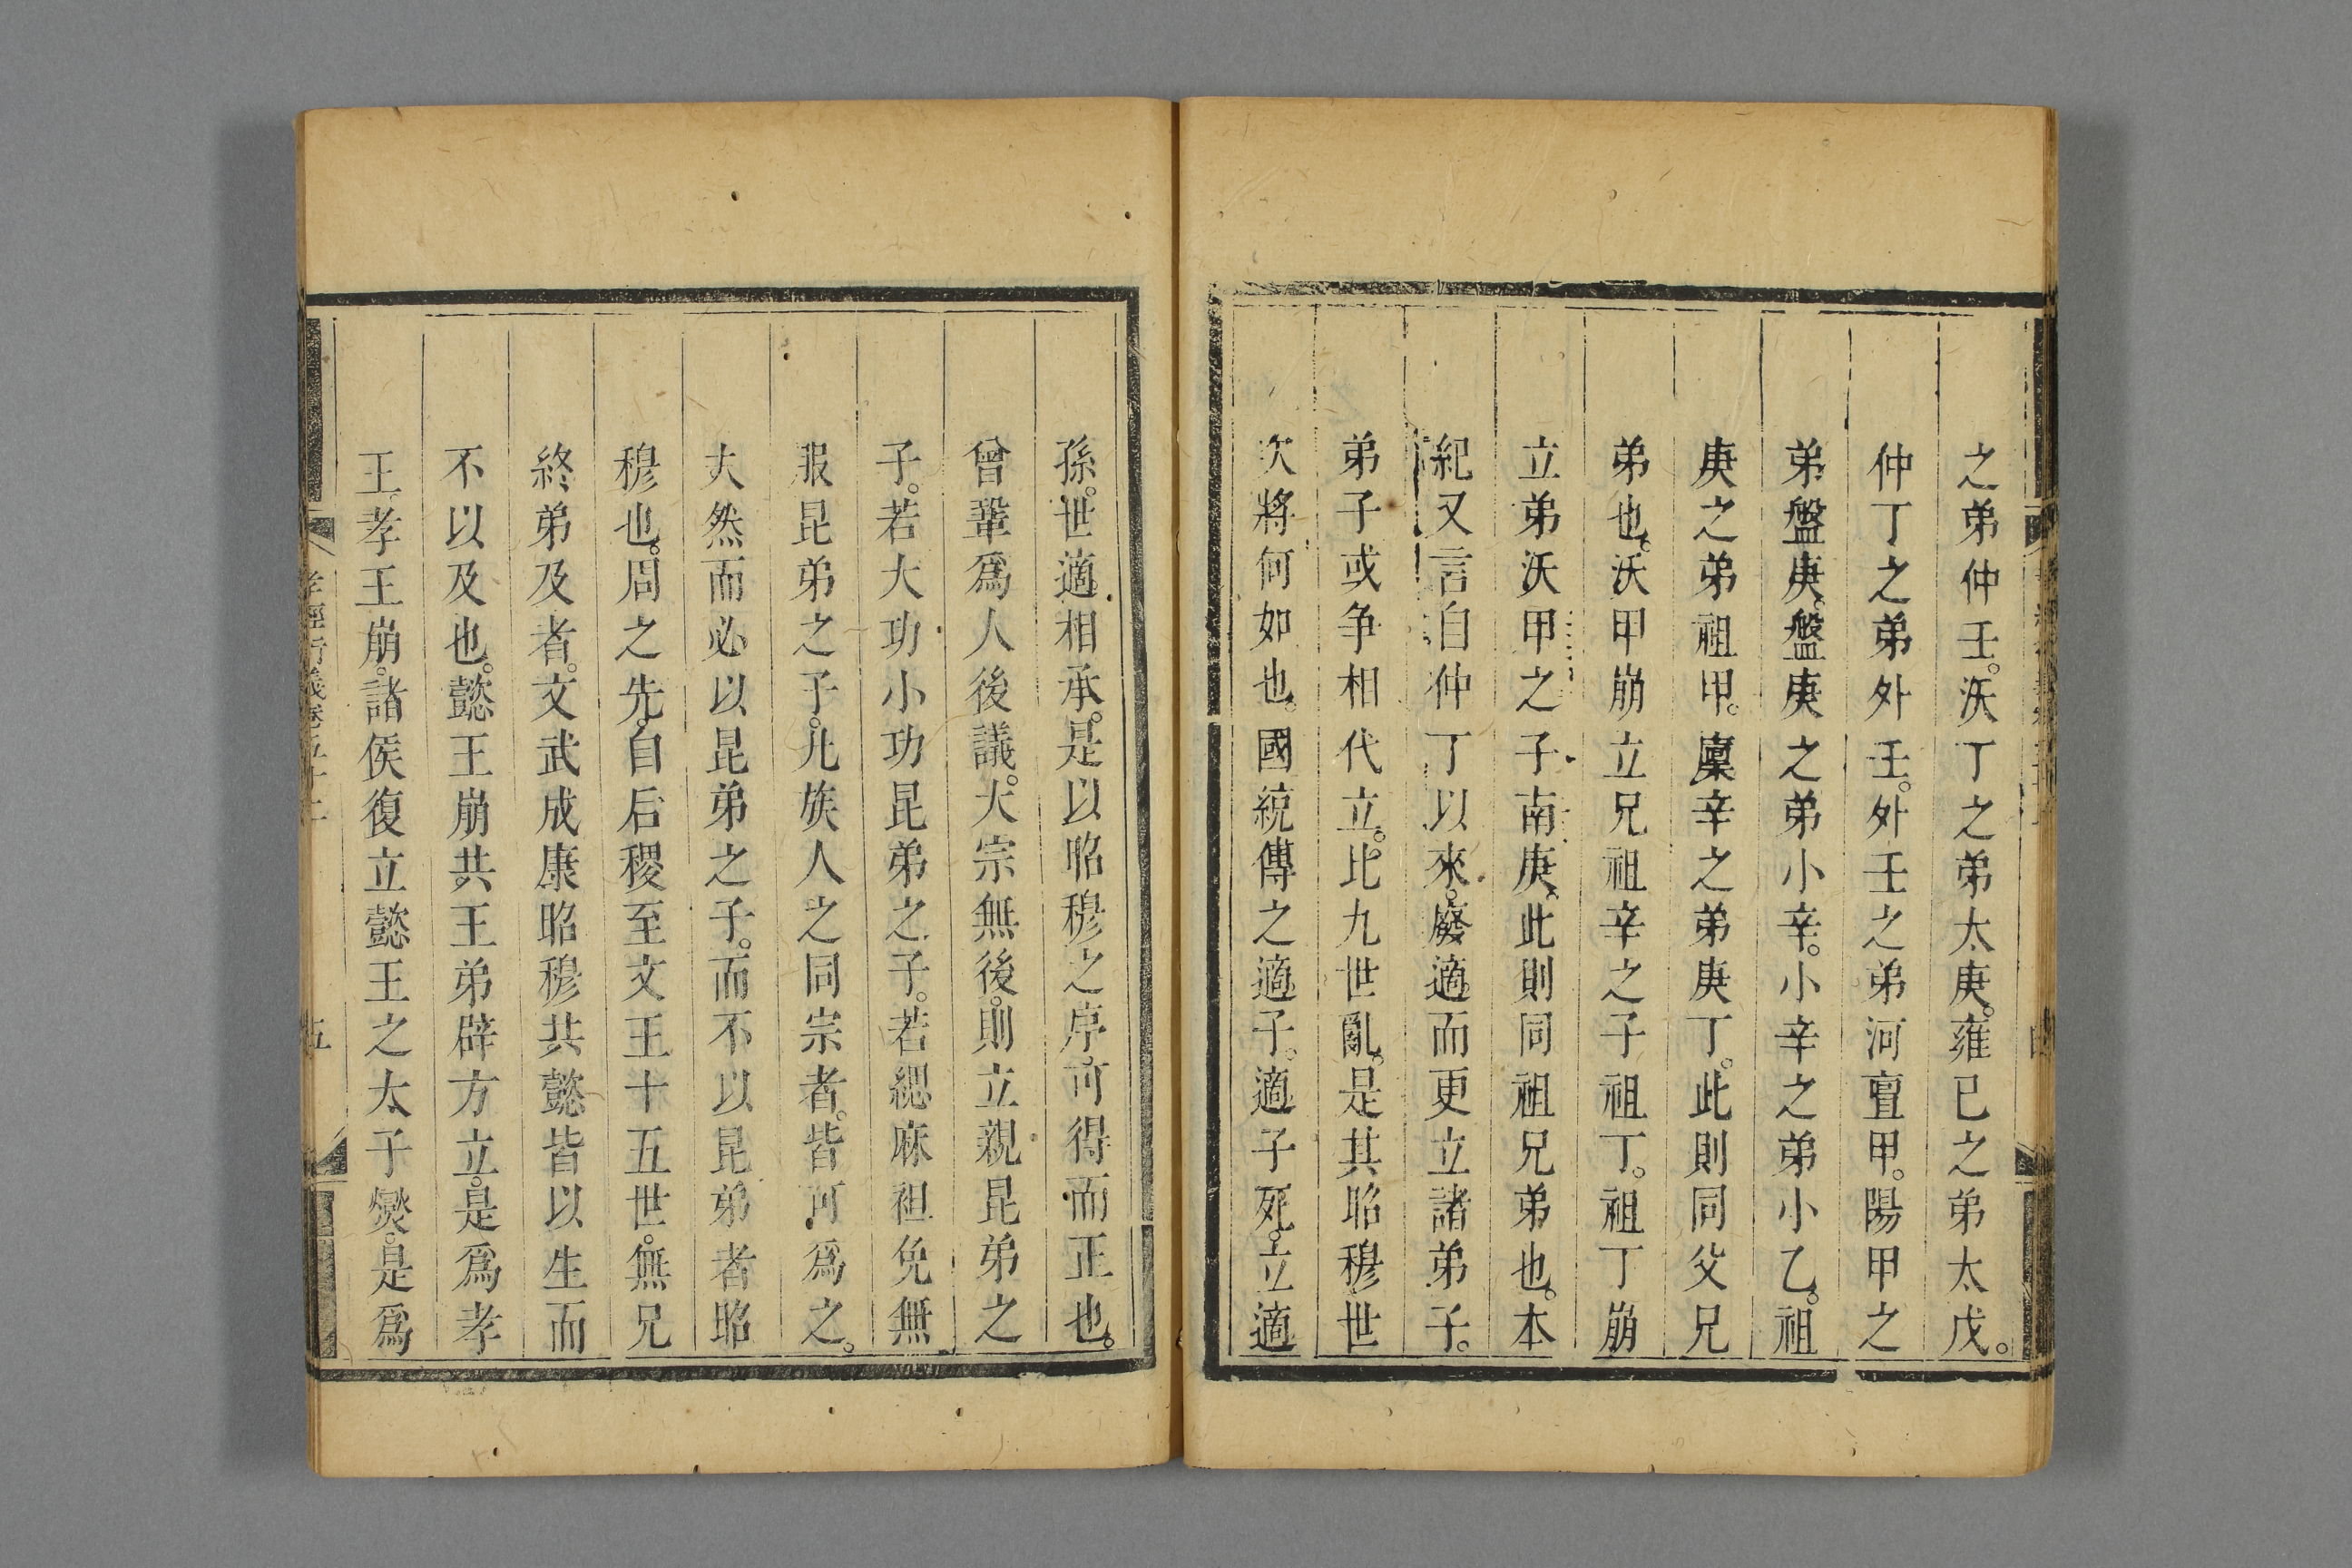 之弟仲壬。沃丁之弟太庚。雍已之弟太戊。
仲丁之弟外壬。外壬之弟河亶甲。陽甲之
弟盤庚。盤庚之弟小辛。小辛之弟小乙。祖
庚之弟祖甲。廩辛之弟庚丁。此則同父兄
弟也。沃甲崩立兄祖辛之子祖丁。祖丁崩
立弟沃甲之子南庚。此則同祖兄弟也。本
紀又言自仲丁以來。廢適而更立諸弟子。
弟子或争相代立。比九世亂。是其昭穆世
次將何如也。國統傳之適子。適子死。立適
孫。世適相承。是以昭穆之序。可得而正也。
曾鞏爲人後議。大宗無後。則立親昆弟之
子。若大功小功昆弟之子。若緦麻袒免無
服昆弟之子。凡族人之同宗者。皆可爲之。
夫然而必以昆弟之子。而不以昆弟者昭
穆也。周之先。自后稷至文王十五世。無兄
終弟及者。文武成康昭穆共懿皆以生而
不以及也。懿王崩共王弟辟方立。是爲孝
王。孝王崩。諸侯復立懿王之太子燮。是爲
孝經衍義卷五十二
五